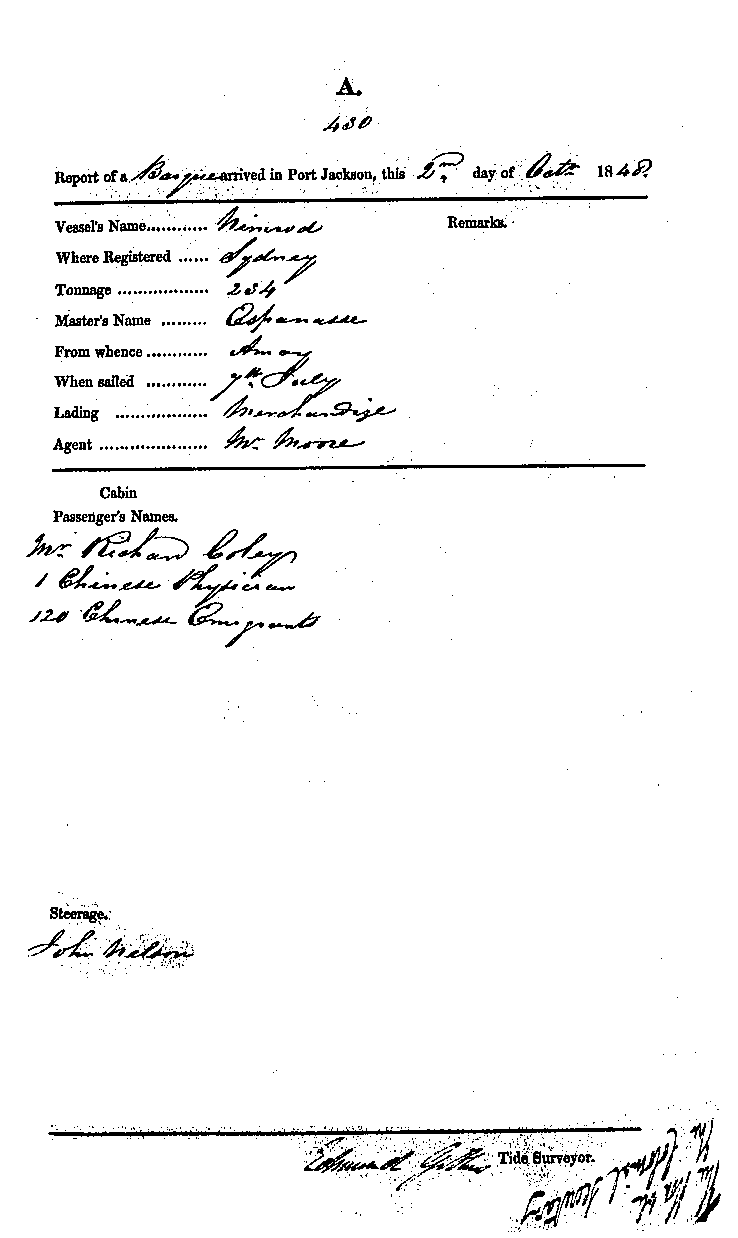 A.
430
Report of a Barque arrived in Port Jackson, this 2nd day of Octr 1848.
Vessel's Name............ Nimrod
Remarks.
Where Registered ...... Sydney
Tonnage .................. 234
Master's Name ......... Espanasse
From whence............ Amoy
When sailed ............ 7th July
Lading .................. Merchandize
Agent ..................... Mr Moore
Cabin
Passenger's Names.
Mr Richan Coley
1 Chinese Physician
120 Chinese Emigrants
Steerage.
John Nelson
Edmund Tide Surveyor.
The Hon ble
The Colonial Secretary